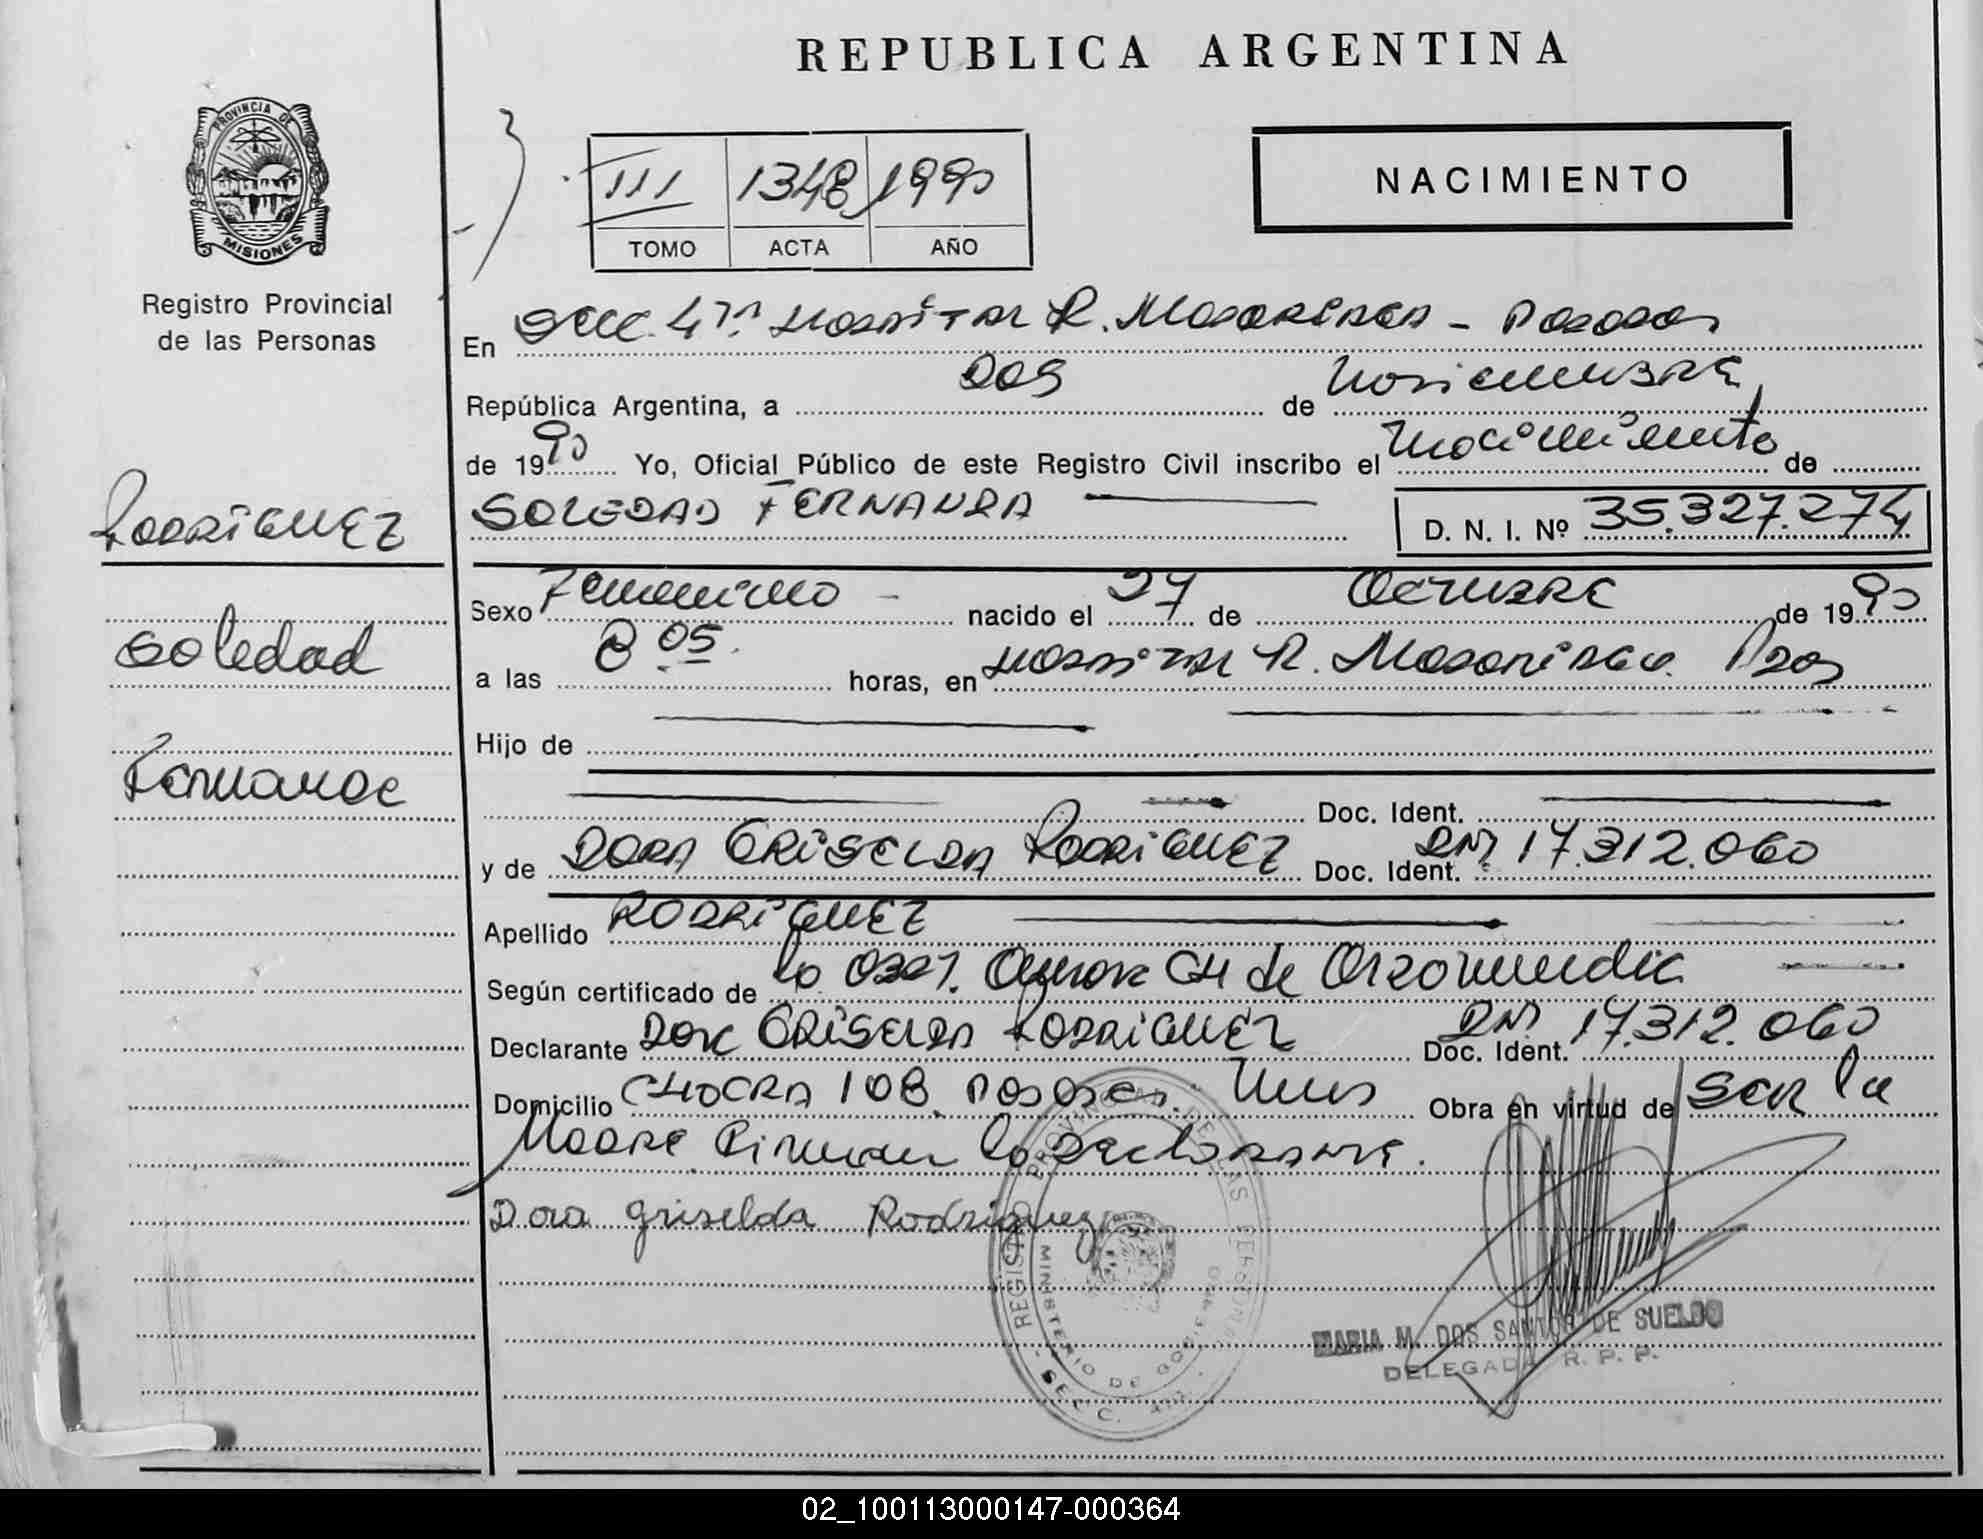 REPUBLICA ARGENTINA
PROVINCIA DE
MISIONES
Registro Provincial
de las Personas
III 1348 1990
TOMO ACTA AÑO
NACIMIENTO
En Secc. 4ta Hospital R. Madariaga - Posadas
República Argentina, a dos de Noviembre
de 1990 Yo, Oficial Público de este Registro Civil inscribo el Nacimiento de
SOLEDAD FERNANDA D. N. I. Nº 35.327.274
RODRIGUEZ
Sexo Femenino - nacido el 27 de Octubre de 1990
Soledad
a las 8 05 horas, en Hospital R. Madariaga Pdas
Hijo de
Fernanda
Doc. Ident.
y de DORA GRISELDA RODRIGUEZ Doc. Ident. DNI 17.312.060
Apellido RODRIGUEZ
Según certificado de la Obst. de
Declarante Dora GRISELDA RODRIGUEZ Doc. Ident. DNI 17.312.060
Domicilio CHACRA 108. Posadas. Mnes Obra en virtud de Ser la
Madre Firman la Declarante.
Dora Griselda Rodriguez
REGISTRO PROVINCIAL DE LAS PERSONAS
MINISTERIO DE GOBIERNO
SECC. 4ta
MARIA M. DOS SANTOS DE SUELDO
DELEGADA R. P. P.
02_100113000147-000364